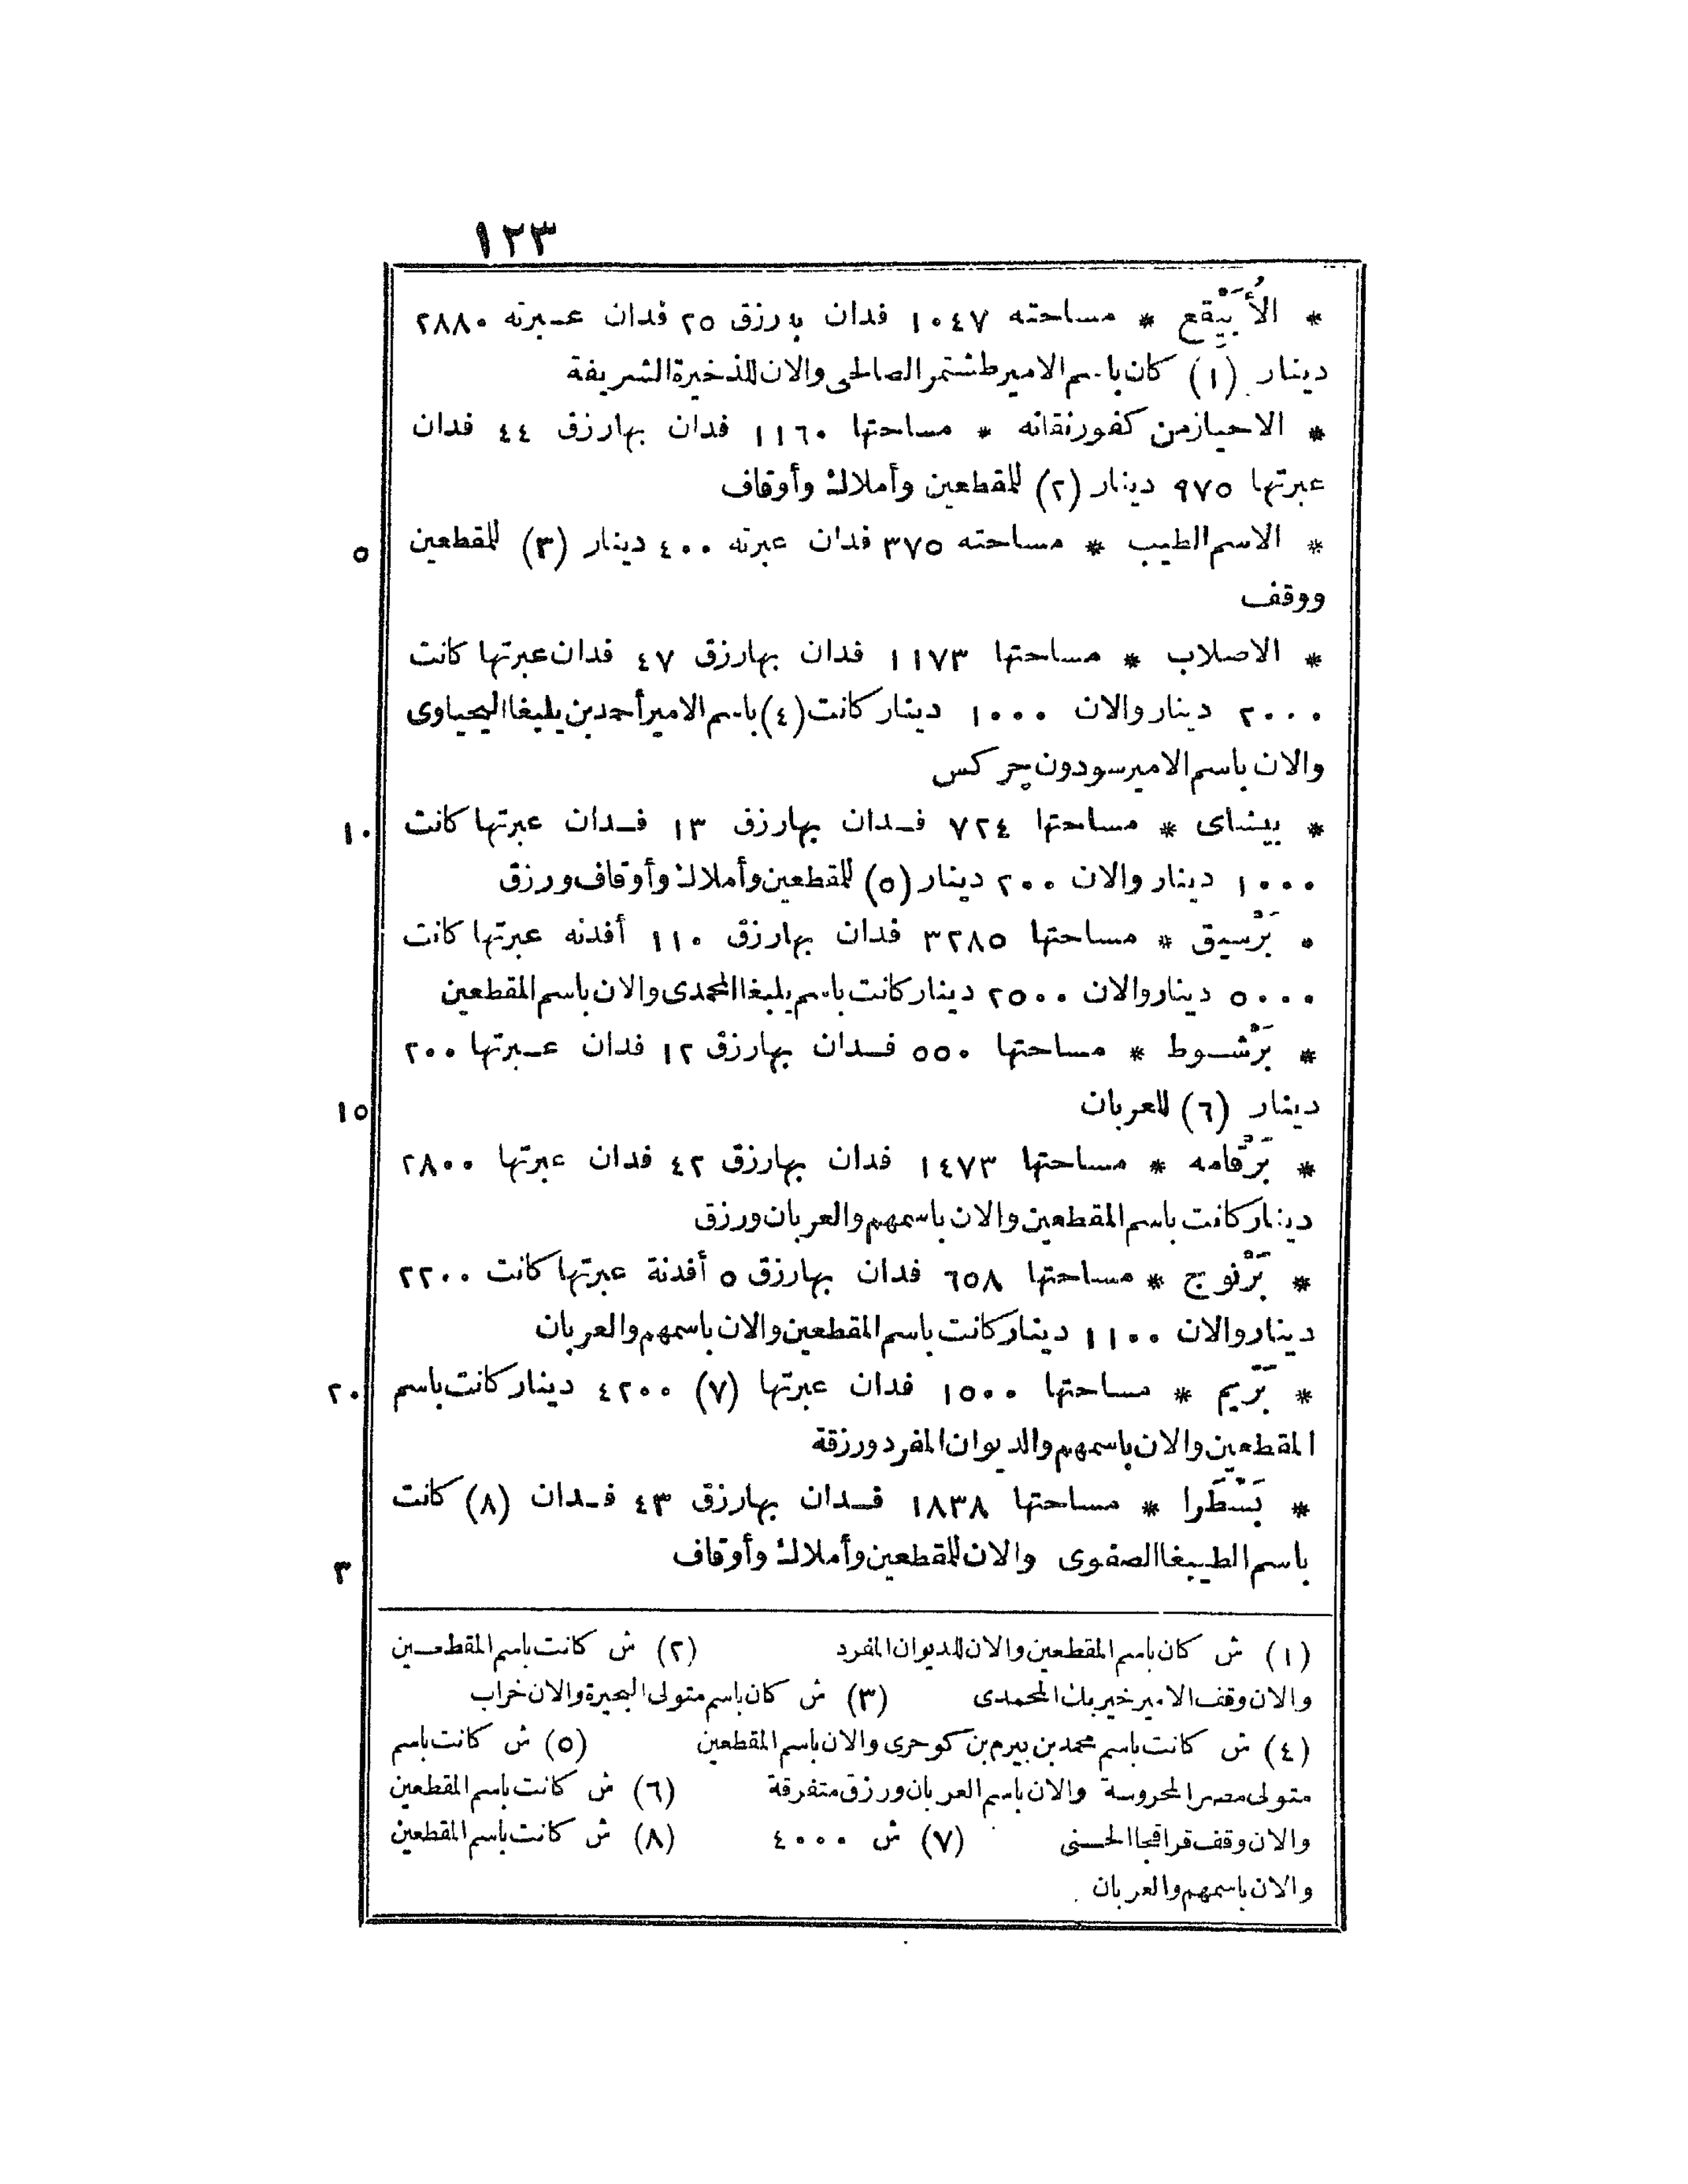 ١٢٣
* الأُبَيْقِع * مساحته ١٠٤٧ فدان به رزق ٢٥ فدان عبرته ٢٨٨٠
دينار (١) كان باسم الامير طشتمر الصالحى والان للذخيرة الشريفة
* الاحياز من كفور نقانه * مساحتها ١١٦٠ فدان بها رزق ٤٤ فدان
عبرتها ٩٧٥ دينار (٢) للمقطعين وأملاك وأوقاف
* الاسم الطيب * مساحته ٣٧٥ فدان عبرته ٤٠٠ دينار (٣) للمقطعين ٥
ووقف
* الاصلاب * مساحتها ١١٧٣ فدان بها رزق ٤٧ فدان عبرتها كانت
٢٠٠٠ دينار والان ١٠٠٠ دينار كانت (٤) باسم الامير أحمد بن يلبغا اليحياوى
والان باسم الامير سودون جركس
* بيشاى * مساحتها ٧٢٤ فدان بها رزق ١٣ فدان عبرتها كانت ١٠
١٠٠٠ دينار والان ٢٠٠ دينار (٥) للمقطعين وأملاك وأوقاف ورزق
* بَرْسيق * مساحتها ٣٢٨٥ فدان بها رزق ١١٠ أفدنه عبرتها كانت
٥٠٠٠ دينار والان ٢٥٠٠ دينار كانت باسم يلبغا المحمدى والان باسم المقطعين
* بَرْشوط * مساحتها ٥٥٠ فدان بها رزق ١٢ فدان عبرتها ٢٠٠
دينار (٦) للعربان ١٥
* بَرْقامه * مساحتها ١٤٧٣ فدان بها رزق ٤٢ فدان عبرتها ٢٨٠٠
دينار كانت باسم المقطعين والان باسمهم والعربان ورزق
* بَرْنوج * مساحتها ٦٥٨ فدان بها رزق ٥ أفدنة عبرتها كانت ٢٢٠٠
دينار والان ١١٠٠ دينار كانت باسم المقطعين والان باسمهم والعربان
* بَرَيم * مساحتها ١٥٠٠ فدان عبرتها (٧) ٤٢٠٠ دينار كانت باسم ٢٠
المقطعين والان باسمهم والديوان المفرد ورزقة
* بَسْطَرا * مساحتها ١٨٣٨ فدان بها رزق ٤٣ فدان (٨) كانت
باسم الطيبغا الصفوى والان للمقطعين وأملاك وأوقاف ٣
(١) ش كان باسم المقطعين والان للديوان المفرد (٢) ش كانت باسم المقطعين
والان وقف الامير خير بك المحمدى (٣) ش كان باسم متولى البحيرة والان خراب
(٤) ش كانت باسم محمد بن بيرم بن كوحرى والان باسم المقطعين (٥) ش كانت باسم
متولى مصر المحروسة والان باسم العربان ورزق متفرقة (٦) ش كانت باسم المقطعين
والان وقف قراقجا الحسنى (٧) ش ٤٠٠٠ (٨) ش كانت باسم المقطعين
والان باسمهم والعربان